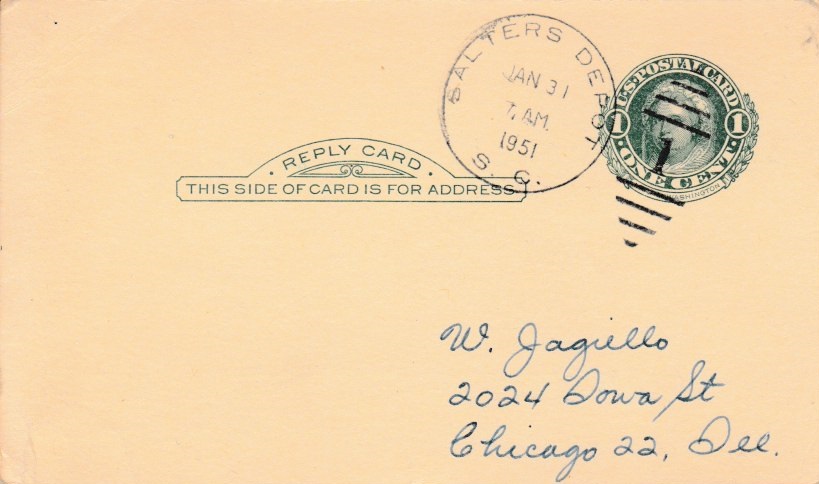 SALTERS DEPOT
JAN 31
7 AM.
1951
S. C.
U.S. POSTAL CARD
1 1
· ONE CENT ·
WASHINGTON
1
· REPLY CARD ·
THIS SIDE OF CARD IS FOR ADDRESS
W. Jagiello
2024 Iowa St
Chicago 22, Ill.